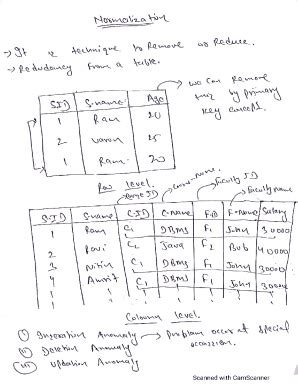 Normalization
→ It is technique to Remove or Reduce.
→ Redundancy from a table.
SID S-name Age
1 Ram 20
2 Varun 25
1 Ram 20
→ we can Remove
by primary
key concept.
Row level.
→ course ID → Course-name. → faculty ID
→ faculty name
S-ID S-name C-ID C-name F-ID F-name Salary
1 Ram C1 DBMS F1 John 30000
2 Ravi C2 Java F2 Bob 40000
3 Nitin C1 DBMS F1 John 30000
4 Amrit C1 DBMS F1 John 30000
Column level.
(i) Insertion Anomaly → problem occur at special
(ii) Deletion Anomaly occassion.
(iii) Updation Anomaly
Scanned with CamScanner